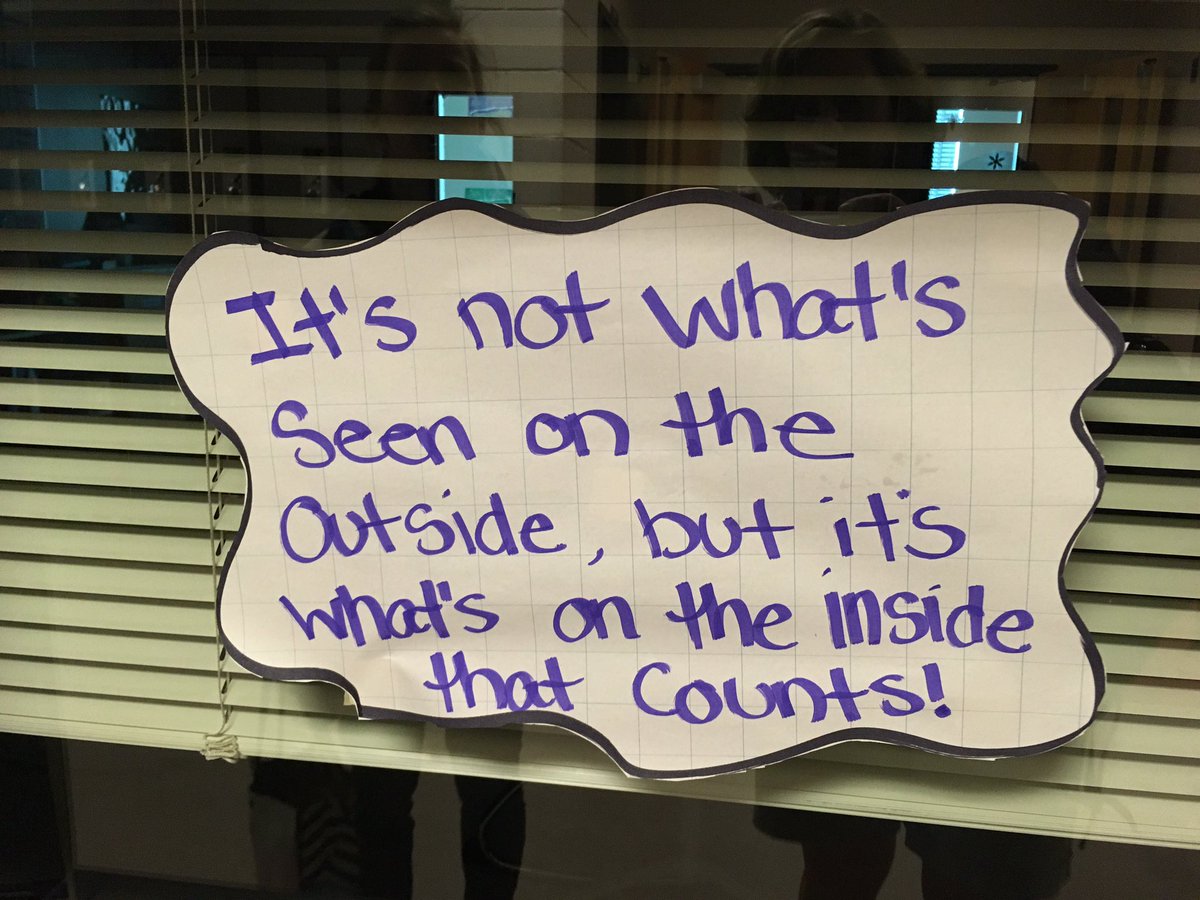 It's not what's
Seen on the
Outside, but it's
what's on the inside
that Counts!